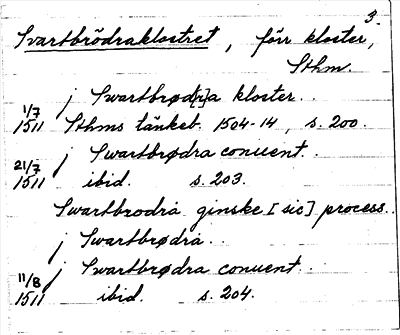 3.
Svartbrödraklostret, förr kloster,
Sthm.
j Swartbrød[r]a kloster..
1/7 1511 Sthms tänkeb. 1504-14, s. 200.
j Swartbrødra conuent..
21/7 1511 ibid. s. 203.
Swartbrodra ginske [sic] process..
j Swartbrødra..
j Swartbrødra conuent..
11/8 1511 ibid. s. 204.